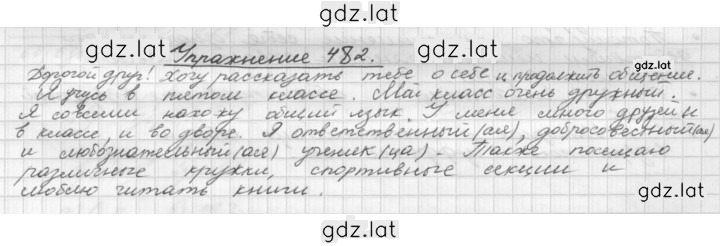 gdz.lat
gdz.lat
Упражнение 482.
gdz.lat
Дорогой друг! Хочу рассказать тебе о себе и продолжить общение.
Я учусь в пятом классе. Мой класс очень дружный.
Я со всеми нахожу общий язык. У меня много друзей и
в классе, и во дворе. Я ответственный(ая), добросовестный(ая)
и любознательный(ая) ученик(ца). Также посещаю
различные кружки, спортивные секции и
люблю читать книги.
gdz.lat
gdz.lat
gdz.lat